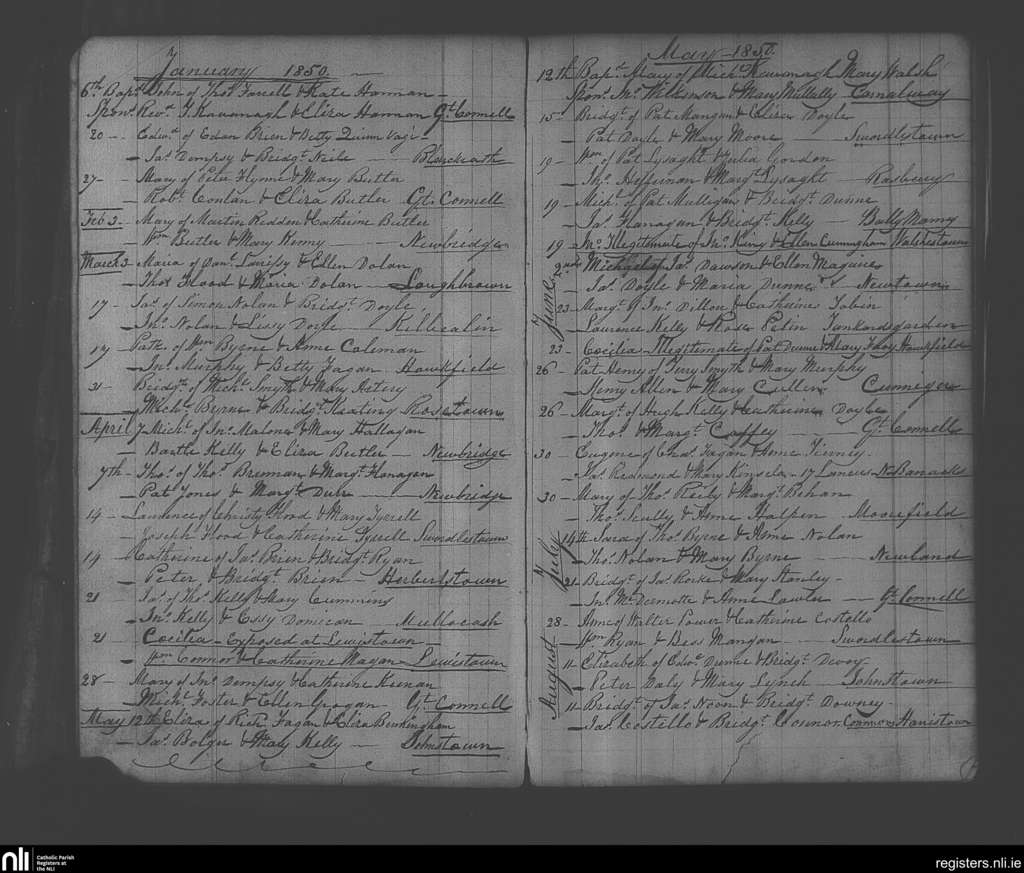 January 1850.
6th Bapt. John of Thos. Farrell & Kate Hannan
Spons. Revd. J. Kavanagh & Eliza Hannan Gt. Connell
20 - Edwd. of Edan Brien & Betty Quinn
Jas. Dempsy & Bridgt. Neile
27 - Mary of Peter Flynne & Mary Butler
Robt. Conlan & Eliza Butler Gt. Connell
Feb 3. Mary of Martin Redden & Catherine Butler
Wm. Butler & Mary Kenny Newbridge
March 3 Maria of Danl. & Ellen Dolan
Thos. Flood & Maria Dolan Loughbrown
17 - Jas. of Simon Nolan & Bridgt. Doyle
Jno. Nolan & Lissy Doyle
17 - Patk. of Wm. Byrne & Anne Coleman
Jno. Murphy & Betty Fagan Hawkfield
31 Bridgt. of Michl. Smyth & Mary
Michl. Byrne & Bridgt. Keating Rosetown
April 7 Michl. of Jno. Malone & Mary Hallagan
Barthw Kelly & Eliza Butler - Newbridge
7th - Thos. of Thos. Brennan & Margt. Flanagan
Pat Jones & Margt. Newbridge
14 - Laurence of Christy Flood & Mary Tyrrell
Joseph Flood & Catherine Tyrrell Swordlestown
14 Catherine of Jas. Brien & Bridgt. Ryan
Peter & Bridgt. Brien - Herbertstown
21 Jas. of Thos. Kelly & Mary Cummins
Jno. Kelly & Essy Donican Mullacash
21 Cecilia - Exposed at Lewistown
Wm. Connor & Catherine Magan Lewistown
28 - Mary of Jno. Dempsy & Catherine Keenan
Michl. Foster & Ellen Grogan Gt. Connell
May 12th Eliza of Richd. Fagan & Eliza Bermingham
Jas. Bolger & Mary Kelly - Johnstown
May 1850.
12th Bapt. Mary of Michl. Kavanagh Mary Walsh
Spons. Jno. Wilkinson & Mary Mullally Carnalway
15 - Bridgt. of Pat Mangan & Eliza Doyle
Pat Doyle & Mary Moore Swordlestown
19 - Wm. of Pat Lysaght & Julia Gordon
Thos. Heffernan & Margt. Lysaght
19 - Michl. of Pat Mulligan & Bridgt. Dunne
Jas. Flanagan & Bridgt. Kelly - Ballymany
19 Jno. Illegitimate of Jno. King & Ellen Cuningham Walshestown
June 2nd Michael of Jas. Dawson & Ellen Maguire
Jas. Doyle & Maria Dunne Newtown
23 - Margt. of Jno. Dillon & Catherine Tobin
Laurence Kelly & Rose Tankardsgarden
23 - Cecilia Illegitimate of Pat Dunne & Mary Hawkfield
26 - Pat Henry of Terry Smyth & Mary Murphy
Henry Allen & Mary Cullen
26 - Margt. of Hugh Kelly & Catherine Doyle
Thos. & Margt. Caffey - Gt. Connell
30 - Eugene of Chas. Fagan & Anne
Jas. Redmond & Mary Kinsela - 17 Lancers N. Barracks
30 - Mary of Thos. Reily & Margt. Behan
Thos. Scully & Anne Halpen Moorefield
July 14th Sara of Thos. Byrne & Anne Nolan
Thos. Nolan & Mary Byrne Newland
21 - Bridgt. of Jas. Rorke & Mary Stanley -
Jno. McDermotte & Anne Lawler - Gt. Connell
28 - Anne of Walter Power & Catherine Costello
Wm. Ryan & Bess Mangan Swordlestown
August 11 Elizabeth of Edwd. Dunne & Bridgt. Devoy
Peter Daly & Mary Lynch - Johnstown
11 - Bridgt. of Jas. Noon & Bridgt. Downey
Jas. Costello & Bridgt. Connor
nli
Catholic Parish
Registers at
the NLI
registers.nli.ie